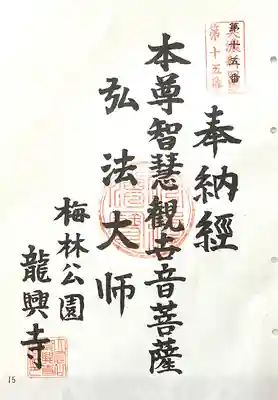 第十五番
奉納經
本尊智慧觀音菩薩
弘法大师
梅林公園
龍興寺
15